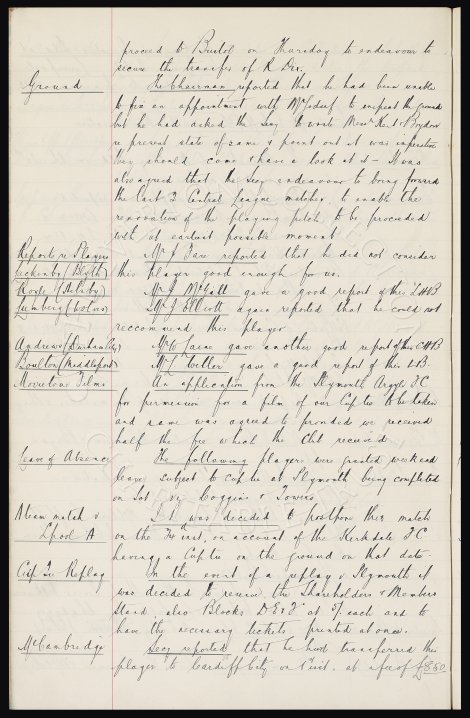 proceed to Bristol on Thursday to endeavour to
secure the transfer of R Dix.
Ground The Chairman reported that he had been unable
to fix an appointment with Mr to inspect the ground
but he had asked the Secy to write Messrs & Boydon
re present state of same & point out it was imperative
they should come & have a look at it - It was
also agreed that the Secy endeavour to bring forward
the last 2 Central League matches, to enable the
renovation of the playing pitch to be proceeded
with at earliest possible moment.
Reports re Players Mr J Fare reported that he did not consider
(Blyth) this player good enough for us.
(Ashby) Mr J McGall gave a good report of this LHB
(Lostoc) Mr J Elliott again reported that he could not
reccommend this player.
Andrews (Durham City) Mr C gave another good report of this CHB
Boulton (Middleport) Mr L gave a good report of this LB.
Movietone Films An application from the Plymouth Argyle FC
for permission for a film of our Cup tie to be taken
and same was agreed to provided we received
half the fee which the Club received
Leave of Absence The following players were granted week end
leave subject to cup tie at Plymouth being completed
on Sat viz Coggins & Towers
A team match v It was decided to postpone this match
Lpool A on the inst, on account of the Kirkdale FC
having a Cup tie on the ground on that date.
Cup Tie Replay In the event of a replay v Plymouth it
was decided to reserve the Shareholders & Members
Stand, also Blocks D E & F at 5/- each and to
have the necessary tickets printed at once.
McCambridge Secy reported that he had transferred this
player to Cardiff City on inst. at a fee of £850